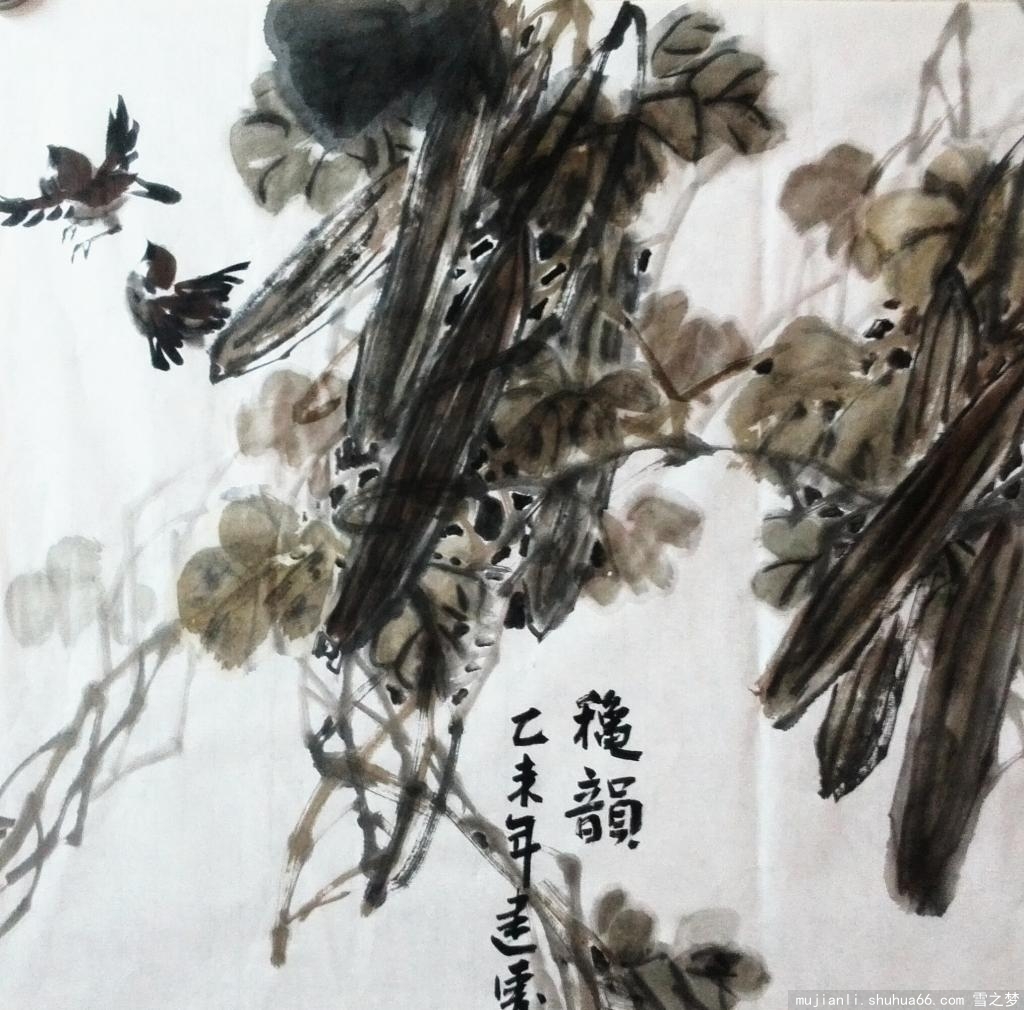 穐韻
乙未年建
mujianli.shuhua66.com 雪之梦